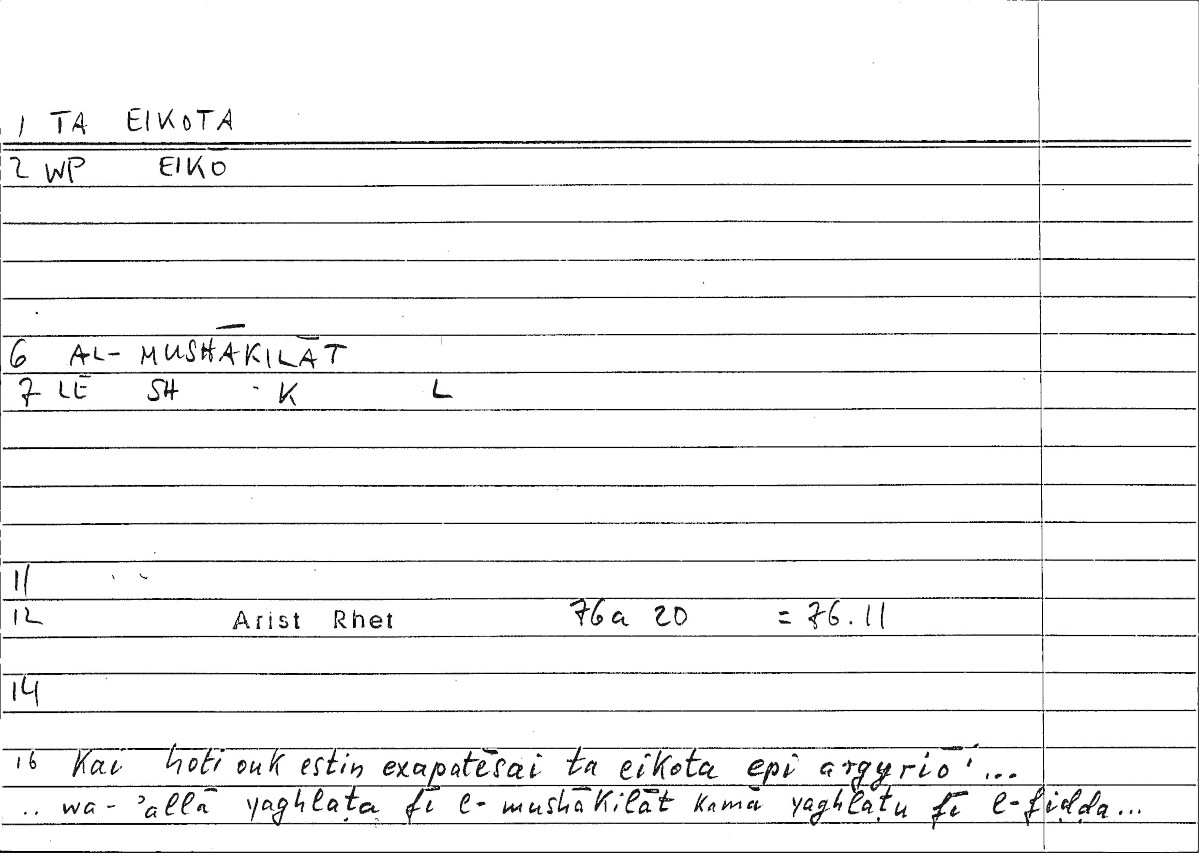 1 TA EIKOTA
2 WP EIKŌ
6 AL- MUSHĀKILĀT
7 LE SH K L
11
12 Arist Rhet 76a 20 = 76.11
14
16 Kai hoti ouk estin exapatēsai ta eikota epi argyriō ...
.. wa-'allā yaghlaṭa fī l-mushākilāt kamā yaghlaṭu fī l-fiḍḍa...